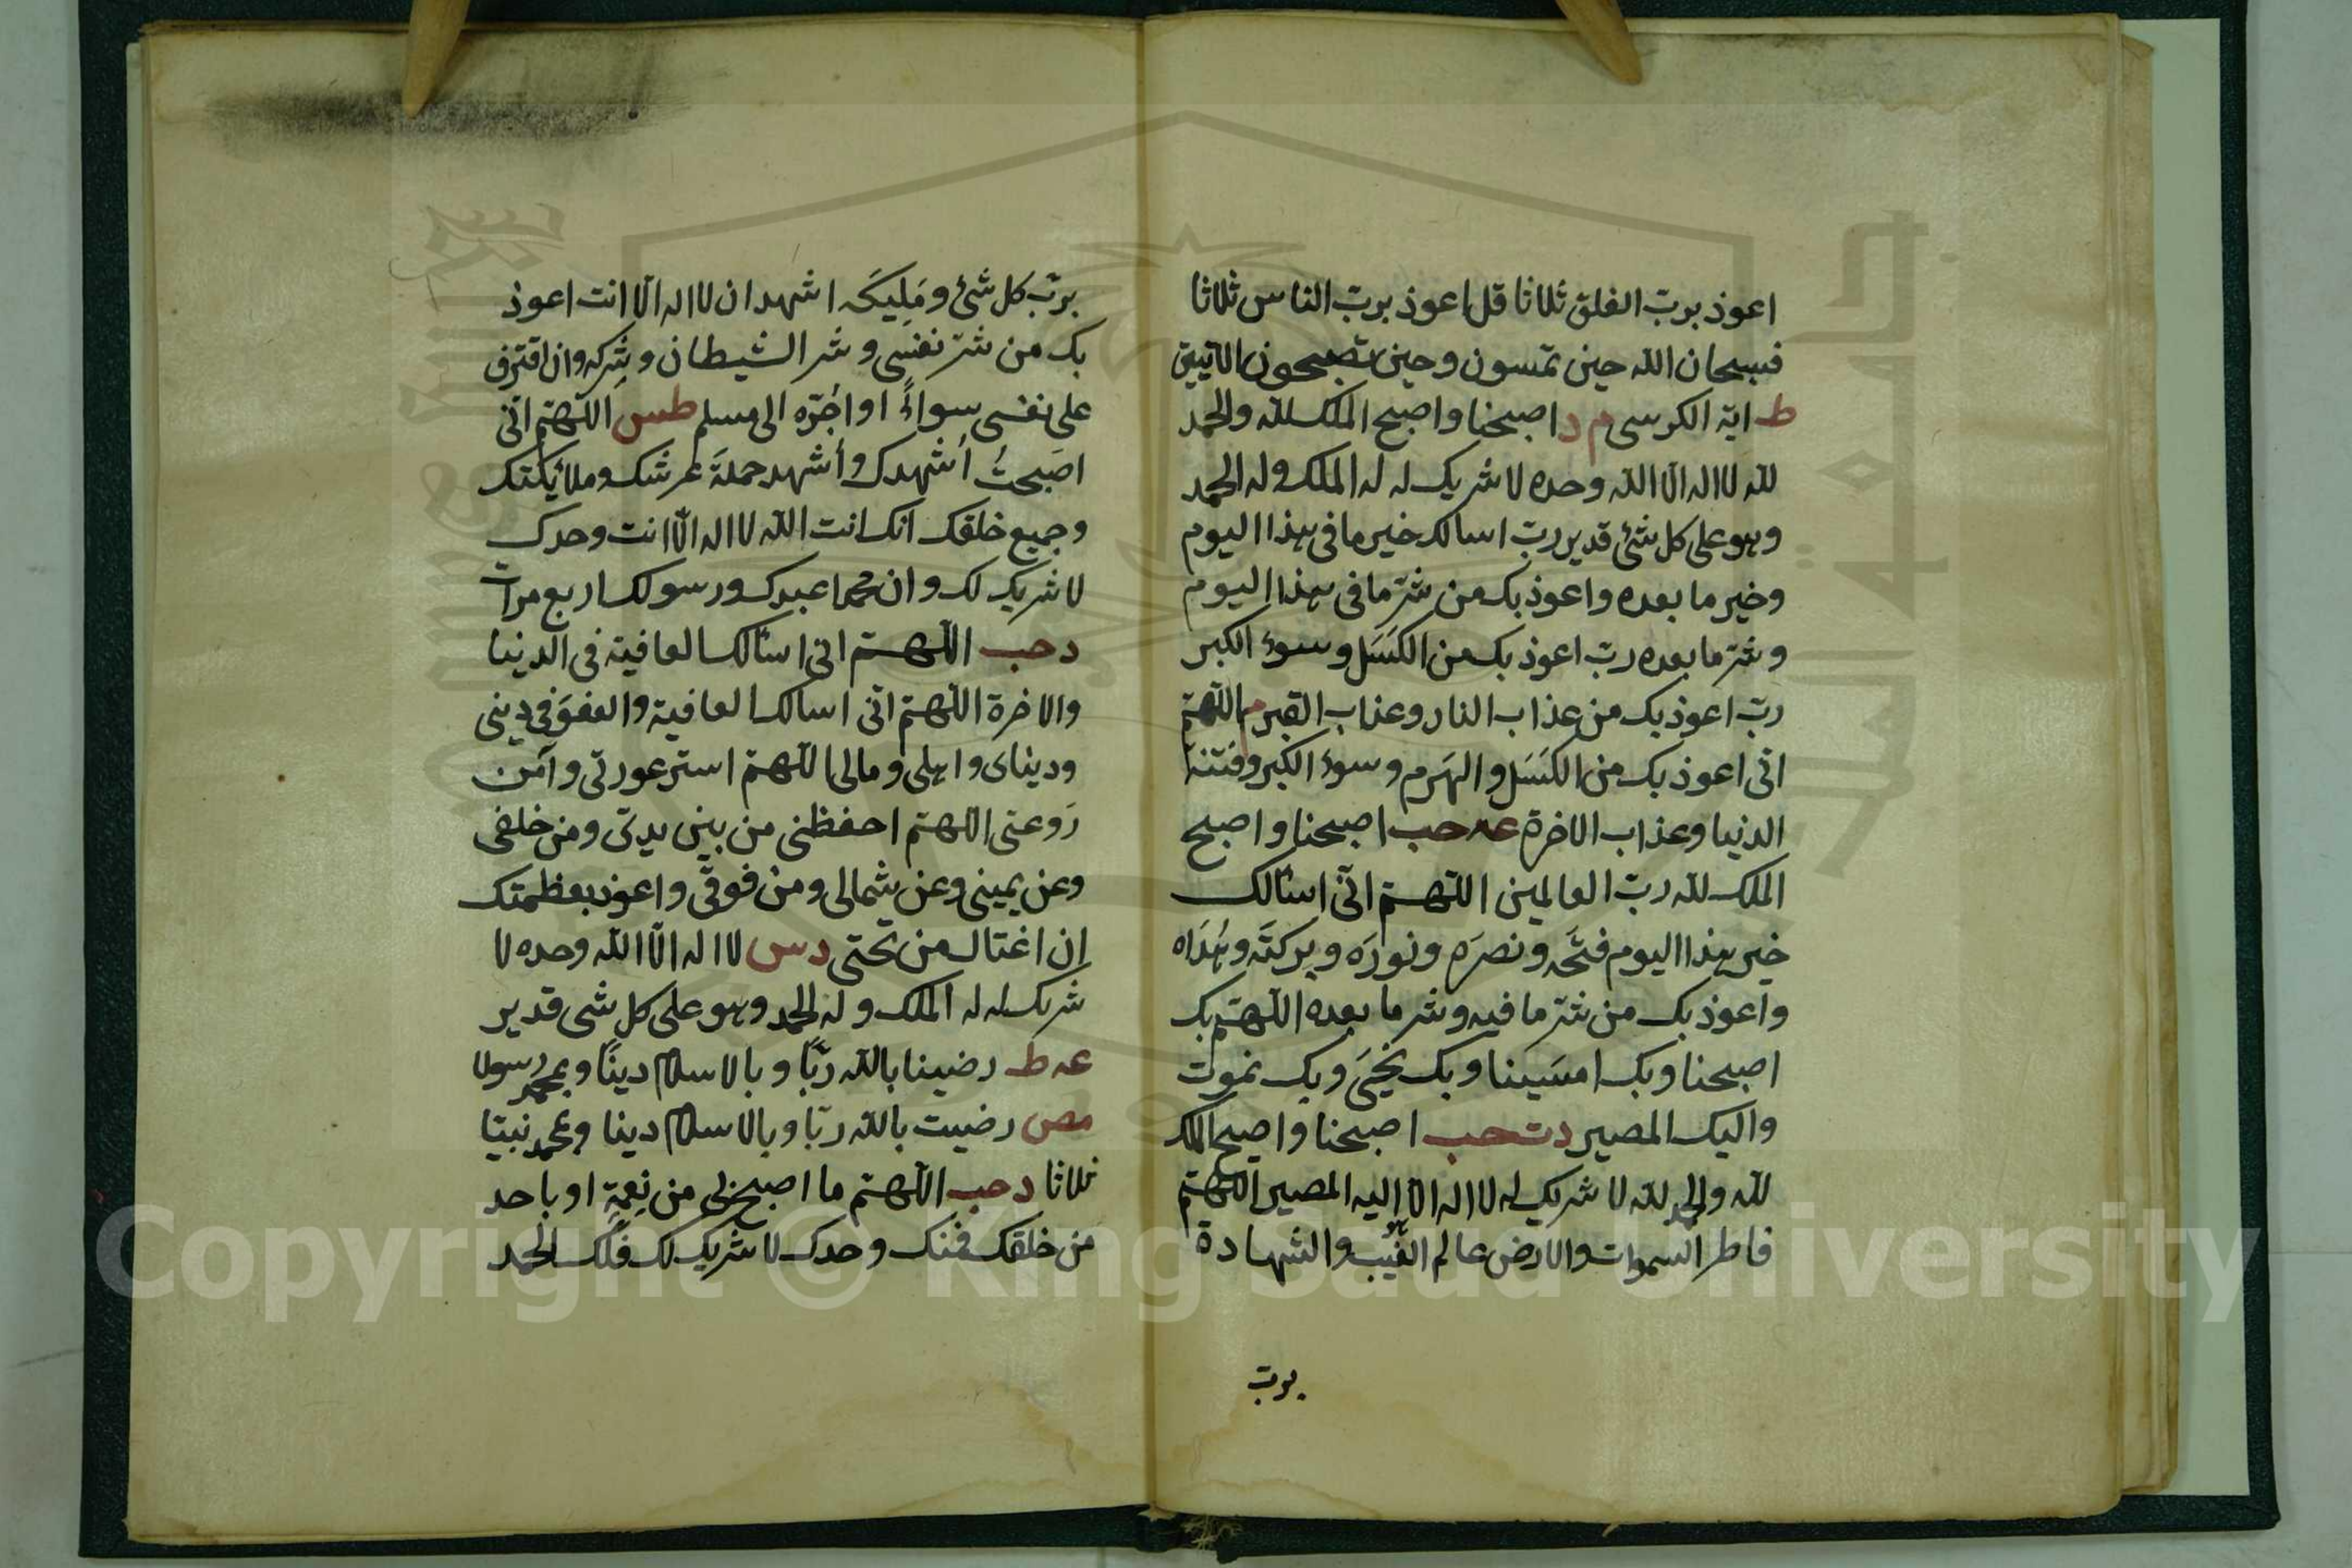 اعوذ بربّ الفلق ثلاثا قل اعوذ بربّ الناس ثلاثا
فسبحان الله حين تمسون وحين تصبحون الآيتين
ط اية الكرسى م د اصبحنا واصبح الملك لله والحمد
لله لا اله الّا الله وحده لا شريك له له الملك وله الحمد
وهو على كل شئ قدير ربّ اسالك خير ما فى هذا اليوم
وخير ما بعده واعوذ بك من شرّ ما فى هذا اليوم
وشرّ ما بعده ربّ اعوذ بك من الكَسَل وسوء الكبر
ربّ اعوذ بك من عذاب النار وعذاب القبر م اللّهمّ
انى اعوذ بك من الكَسَل والهَرم وسوء الكبر وفتنة
الدنيا وعذاب الاخرة عه حب اصبحنا واصبح
الملك لله ربّ العالمين اللّهمّ انّى اسئالك
خير هذا اليوم فتحَه ونصرَه ونورَه وبركتَه وهُدَاه
واعوذ بك من شرّ ما فيه وشر ما بعده اللّهمّ بك
اصبحنا وبك امسَينا وبك نحيَى وبك نموت
واليك المصير دت حب اصبحنا واصبح الملك
لله والحمد لله لا شريك له لا اله الّا اليه المصير اللّهمّ
هو
فاطر السموات والارض عالم الغيب والشهادة
بربّ
بربّ كل شئ ومَلِيكَه اشهد ان لا اله الّا انت اعوذ
بك من شرّ نفسى وشر الشيطان وشِركه وان اقترف
على نفسى سواءً او اجُرّه الى مسلم طس اللّهمّ انّى
اصبَحتُ اُشهدك واُشهد حملَةَ عرشك وملائكتك
وجميع خلقك انك انت الله لا اله الّا انت وحدك
لا شريك لك وان محمدا عبدك ورسولك اربع مرات
د حب اللّهمّ انى اسئالك العافية فى الدنيا
والاخرة اللّهمّ انّى اسالك العافية والعفوَ فى دِينى
ودنياى واهلى ومالى اللّهمّ استر عورتى وآمن
رَوعتى اللّهمّ احفظنى من بين يدىّ ومن خلفى
وعن يمينى وعن شمالى ومن فوقى واعوذ بعظمتك
ان اغتال من تحتى د س لا اله الّا الله وحده لا
شريك له له الملك وله الحمد وهو على كل شى قدير
عه ط رضينا بالله ربًّا وبالاسلام دينًا وبمحمد رسولا
مص رضيت بالله ربّا وبالاسلام دينا وبمحمد نبيّا
ثلاثا د حب اللّهمّ ما اصبح بى من نِعمةٍ او باحد
من خلقك فمنك وحدك لا شريك لك فلك الحمد
Copyright © King Saud University